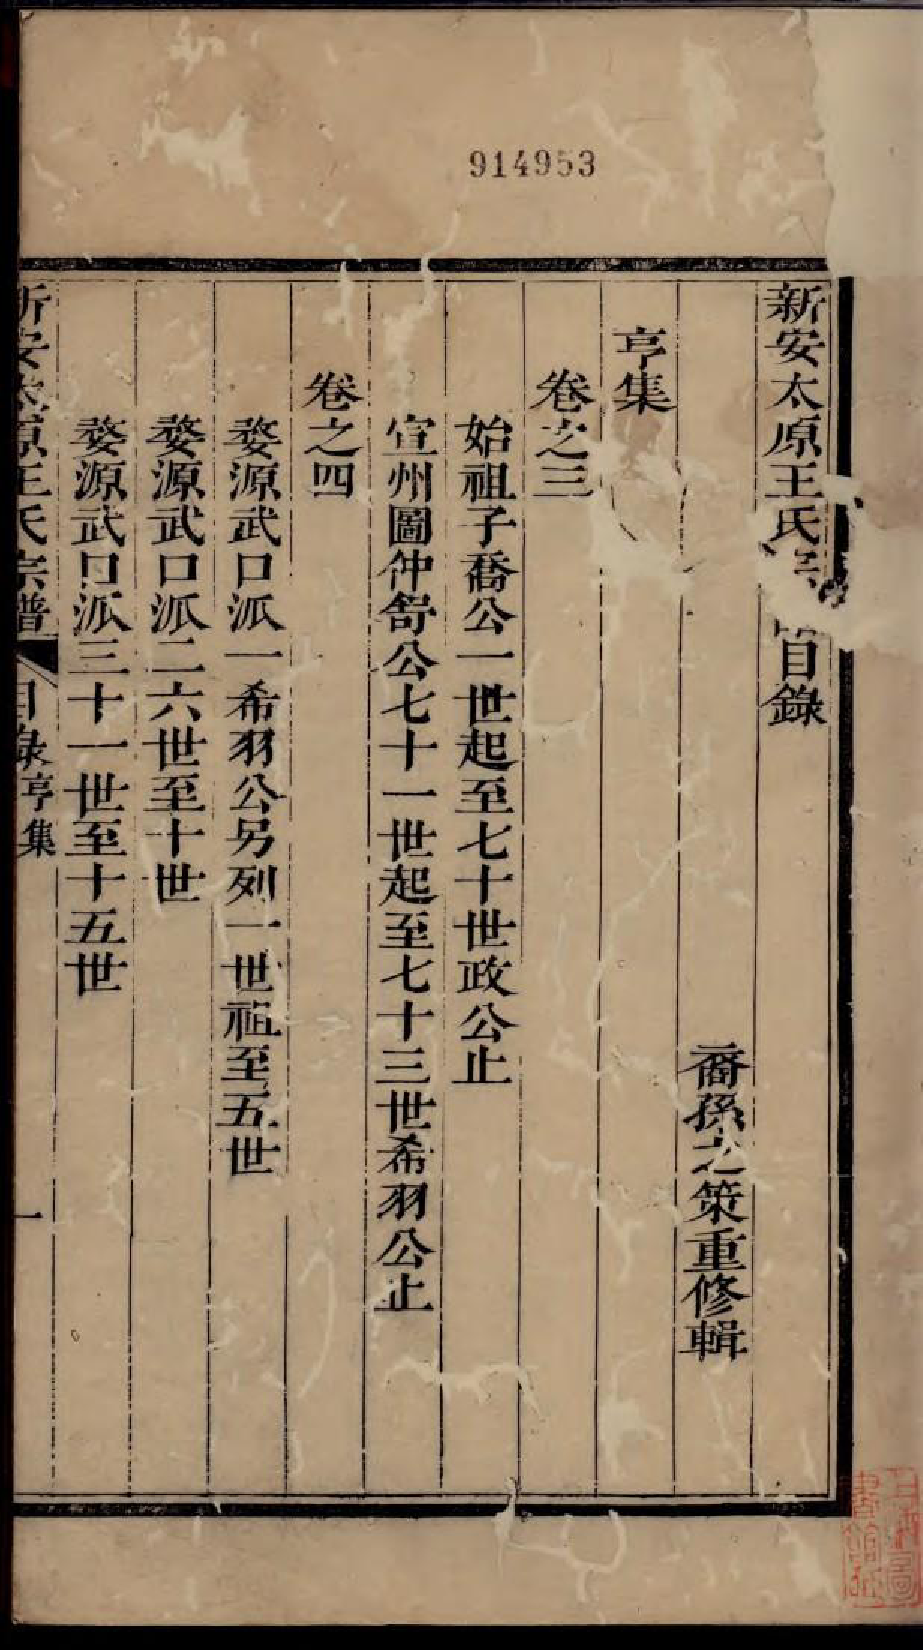 914953
新安太原王氏宗 目錄
裔孫之策重修輯
亨集
卷之三
始祖子喬公一世起至七十世政公止
宣州圖仲舒公七十一世起至七十三世希羽公止
卷之四
婺源武口派一希羽公另列一世祖至五世
婺源武口派二六世至十世
婺源武口派三十一世至十五世
新安太原王氏宗譜
目錄亨集
一